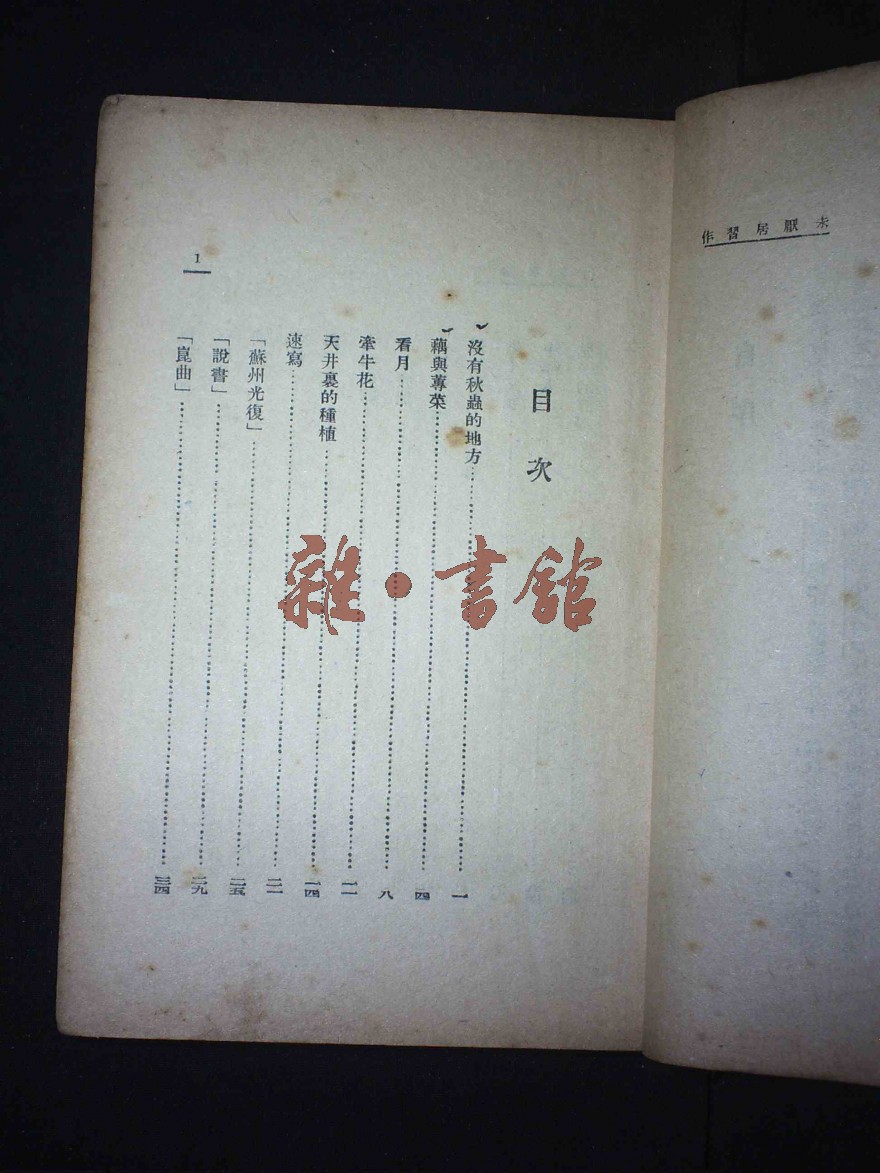 未厭居習作
目次
沒有秋蟲的地方……一
藕與蓴菜……四
看月……八
牽牛花……一一
天井裏的種植……一四
速寫……二一
「蘇州光復」……二五
「說書」……二九
「崑曲」……三四
1
雜·書舘